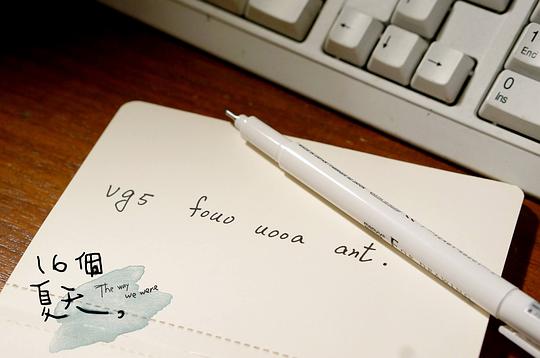 1
End
0
Ins
←
↓
→
vg5 fouo uooa ant.
16個
夏天，
The way
we were